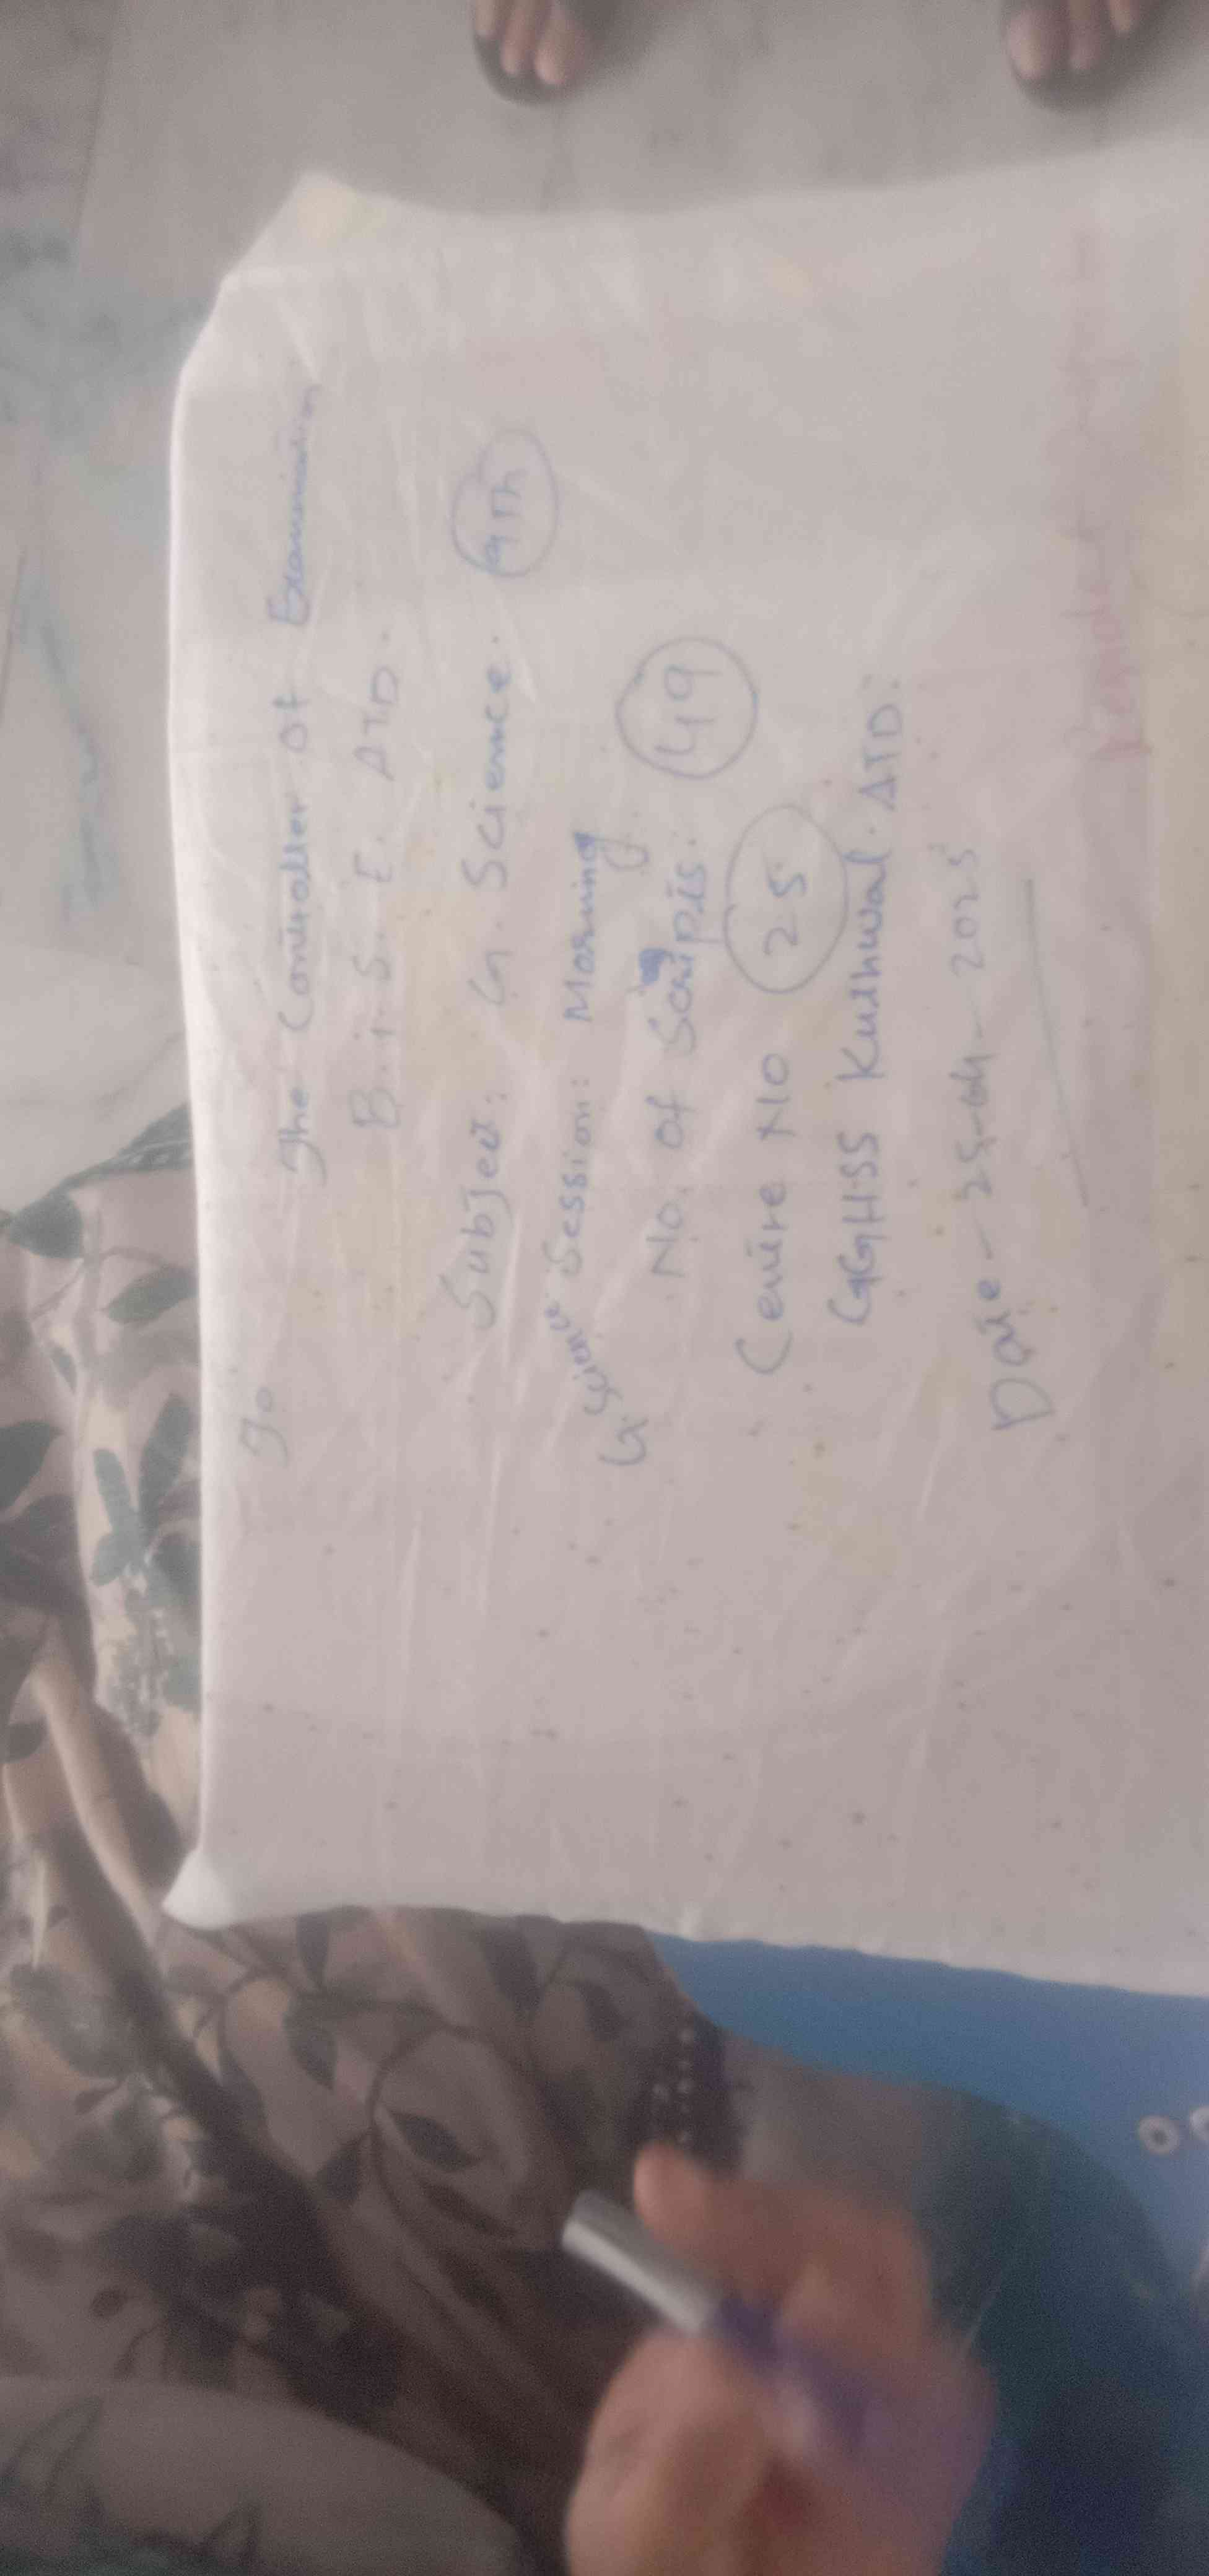 To
The Controller of Examination
B.I.S.E. ATD.
Subject: G. Science. 9Th
Session: Morning
G. Science
No. of Scripts: 49
Centre No 25
GGHSS Kuthwal. ATD:
Date - 25-04-2025